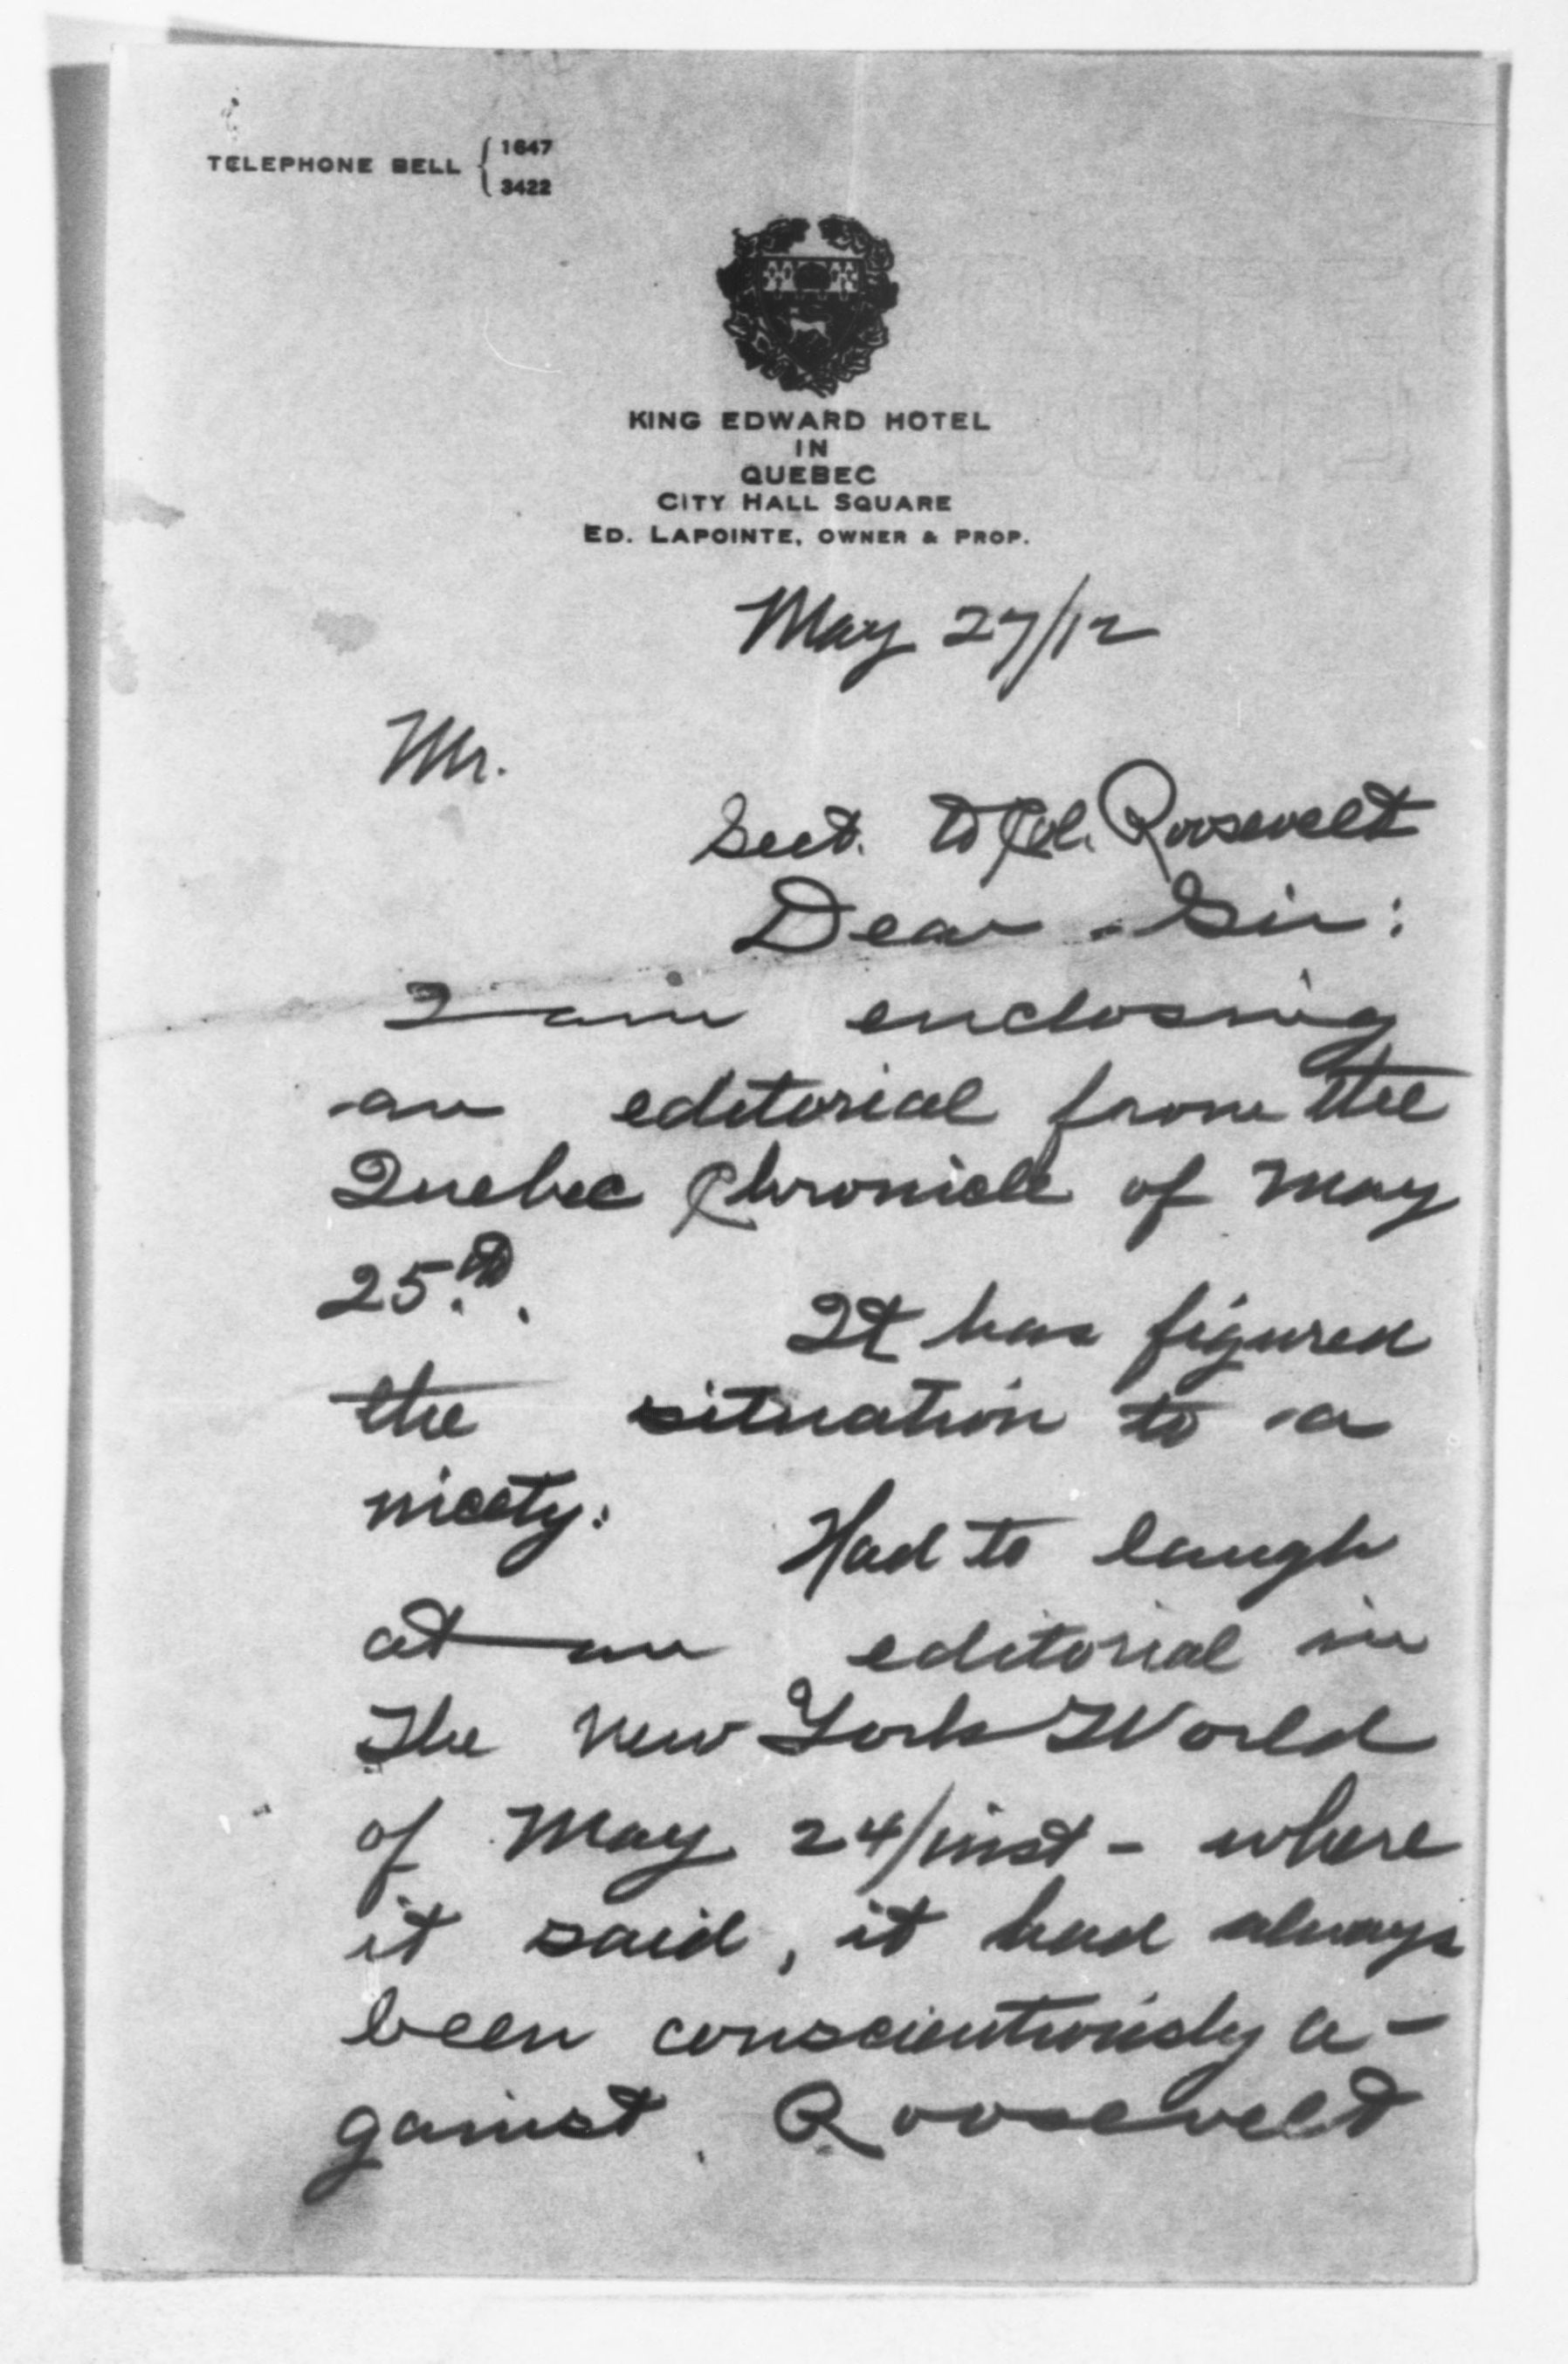 TELEPHONE BELL { 1647
3422
KING EDWARD HOTEL
IN
QUEBEC
CITY HALL SQUARE
ED. LAPOINTE, OWNER & PROP.
May 27/12
Mr.
Sect. to Col. Roosevelt
Dear Sir:
I am enclosing
an editorial from the
Quebec Chronicle of May
25th.
It has figured
the situation to a
nicety:
Had to laugh
at an editorial in
The New York World
of May 24/inst - where
it said, it had always
been conscientiously a-
gainst Roosevelt